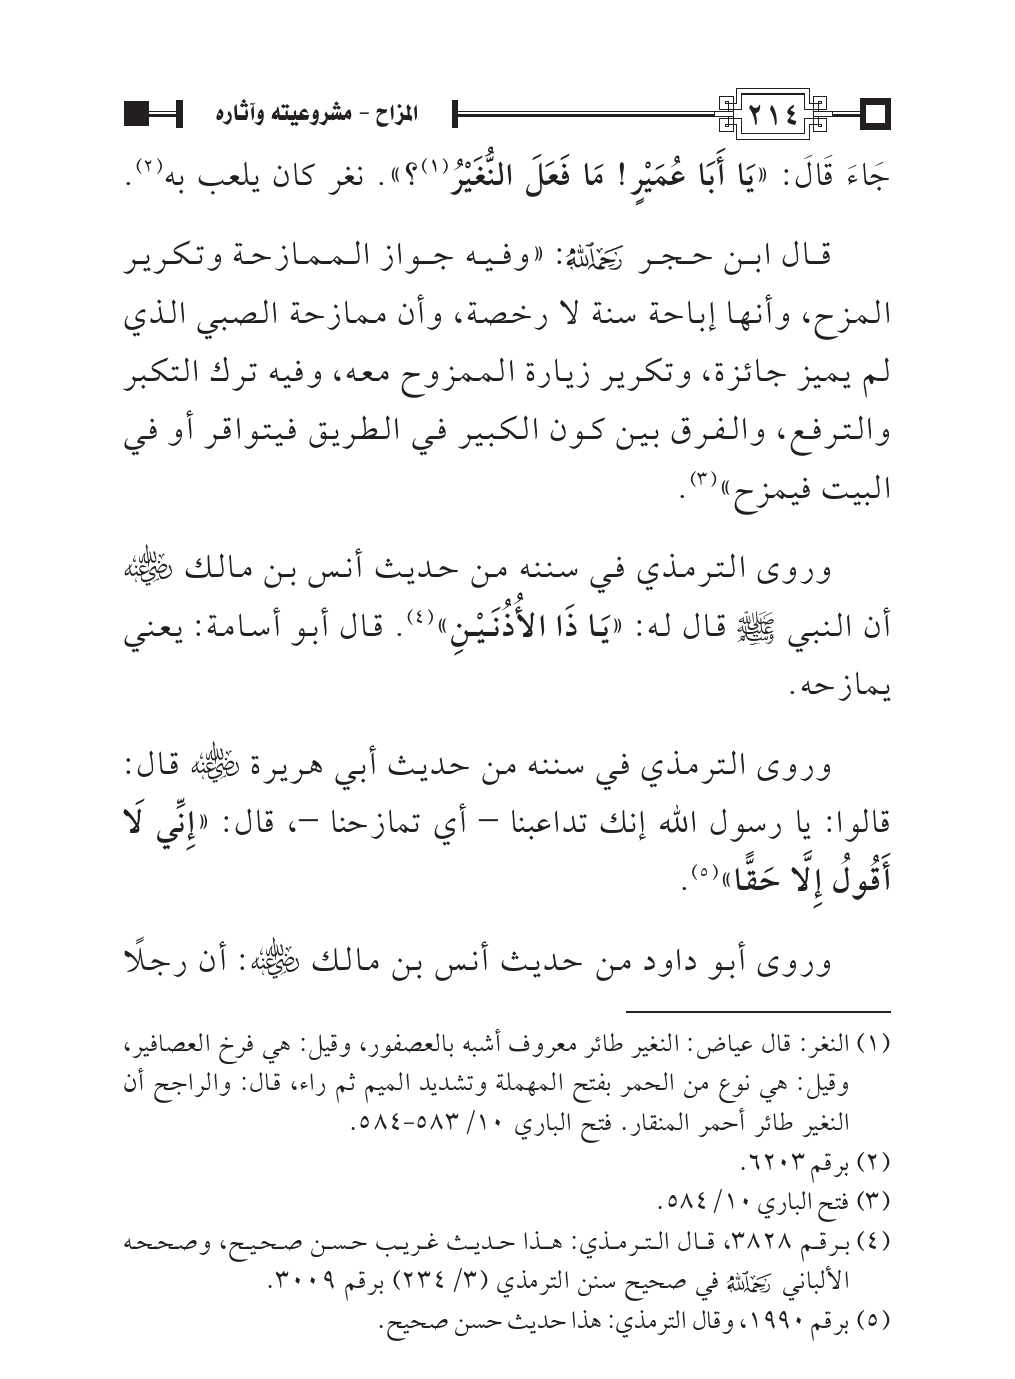 ٢١٤
المزاح - مشروعيته وآثاره
جَاءَ قَالَ: «يَا أَبَا عُمَيْرٍ! مَا فَعَلَ النُّغَيْرُ(١)؟». نغر كان يلعب به(٢).
قال ابن حجر رَحِمَهُ اللهُ: «وفيه جواز الممازحة وتكرير
المزح، وأنها إباحة سنة لا رخصة، وأن ممازحة الصبي الذي
لم يميز جائزة، وتكرير زيارة الممزوح معه، وفيه ترك التكبر
والترفع، والفرق بين كون الكبير في الطريق فيتواقر أو في
البيت فيمزح»(٣).
وروى الترمذي في سننه من حديث أنس بن مالك رضي الله عنه
أن النبي ﷺ قال له: «يَا ذَا الأُذُنَيْنِ»(٤). قال أبو أسامة: يعني
يمازحه.
وروى الترمذي في سننه من حديث أبي هريرة رضي الله عنه قال:
قالوا: يا رسول الله إنك تداعبنا – أي تمازحنا –، قال: «إِنِّي لَا
أَقُولُ إِلَّا حَقًّا»(٥).
وروى أبو داود من حديث أنس بن مالك رضي الله عنه: أن رجلًا
(١) النغر: قال عياض: النغير طائر معروف أشبه بالعصفور، وقيل: هي فرخ العصافير،
وقيل: هي نوع من الحمر بفتح المهملة وتشديد الميم ثم راء، قال: والراجح أن
النغير طائر أحمر المنقار. فتح الباري ١٠/ ٥٨٣-٥٨٤.
(٢) برقم ٦٢٠٣.
(٣) فتح الباري ١٠/ ٥٨٤.
(٤) برقم ٣٨٢٨، قال الترمذي: هذا حديث غريب حسن صحيح، وصححه
الألباني رَحِمَهُ اللهُ في صحيح سنن الترمذي (٣/ ٢٣٤) برقم ٣٠٠٩.
(٥) برقم ١٩٩٠، وقال الترمذي: هذا حديث حسن صحيح.